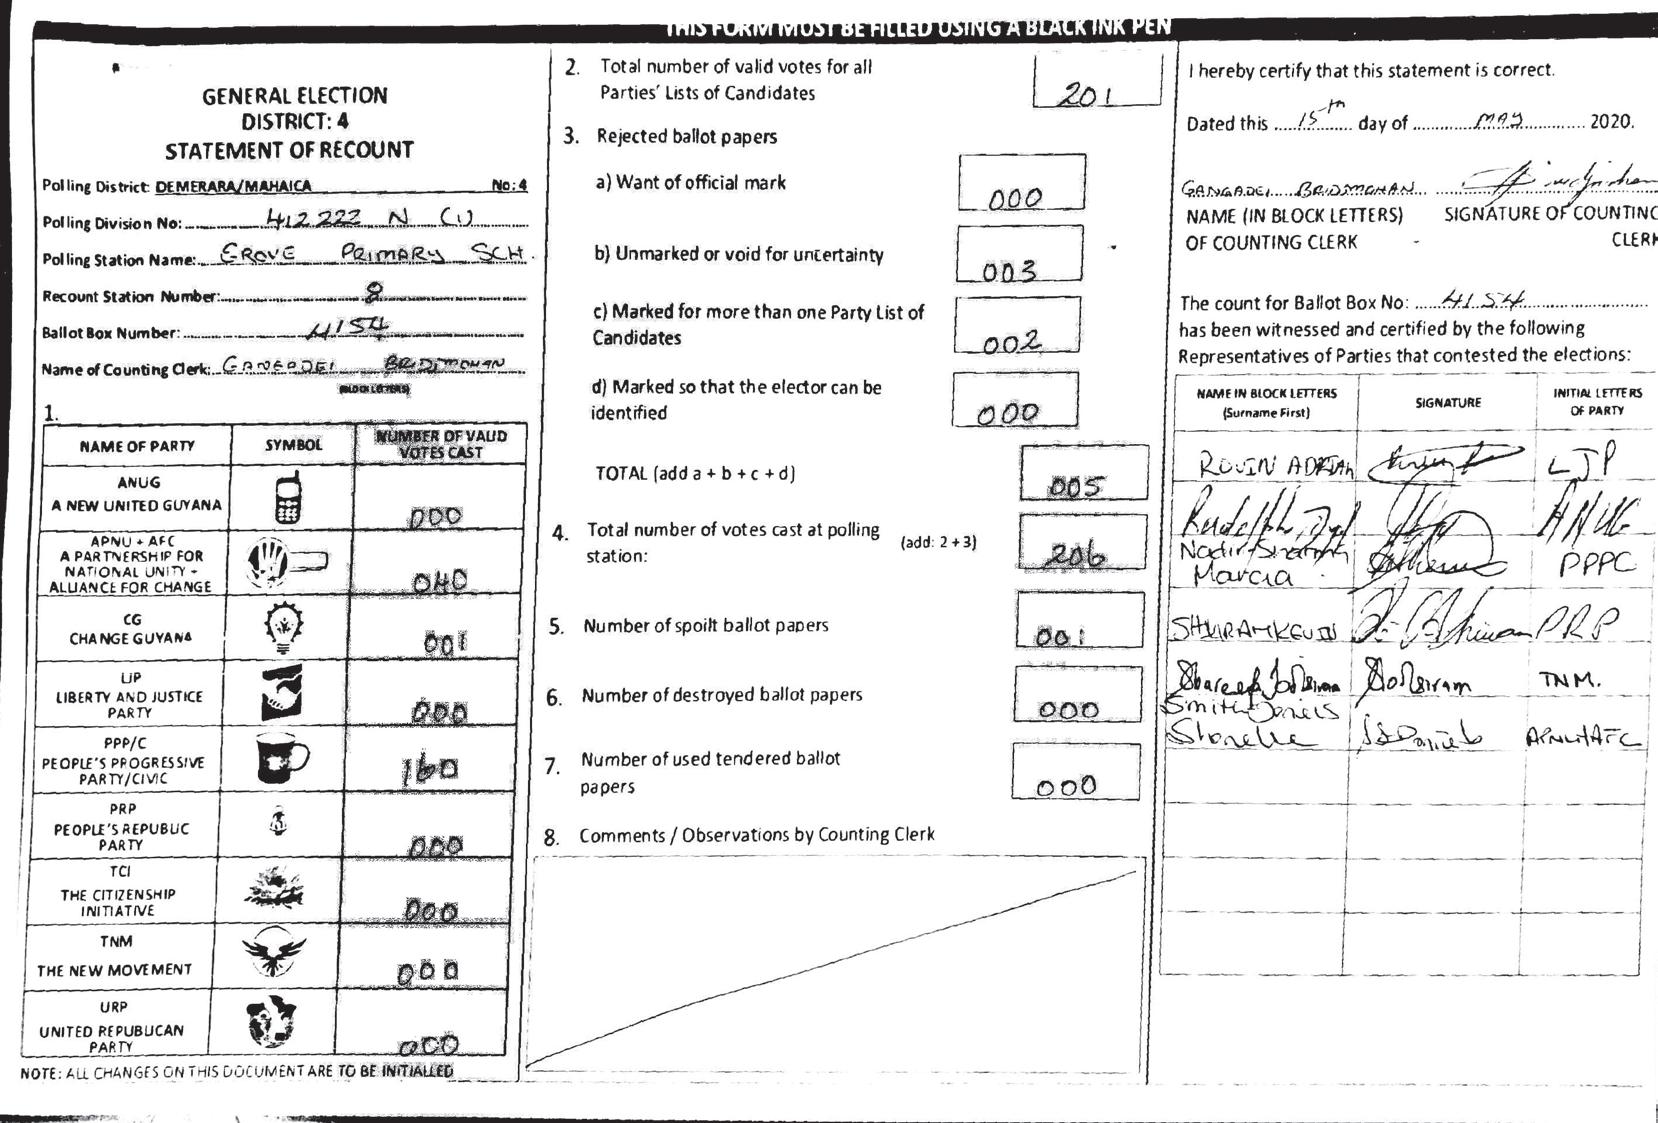 THIS FORM MUST BE FILLED USING A BLACK INK PEN
GENERAL ELECTION
DISTRICT: 4
STATEMENT OF RECOUNT
Polling District: DEMERARA/MAHAICA No: 4
Polling Division No: 412222 N (1)
Polling Station Name: GROVE PRIMARY SCH.
Recount Station Number: 8
Ballot Box Number: 4154
Name of Counting Clerk: GANGADEI BRIDJMOHAN
(BLOCK LETTERS)
1.
NAME OF PARTY SYMBOL NUMBER OF VALID VOTES CAST
ANUG
A NEW UNITED GUYANA 000
APNU + AFC
A PARTNERSHIP FOR
NATIONAL UNITY -
ALLIANCE FOR CHANGE 040
CG
CHANGE GUYANA 001
LJP
LIBERTY AND JUSTICE
PARTY 000
PPP/C
PEOPLE'S PROGRESSIVE
PARTY/CIVIC 160
PRP
PEOPLE'S REPUBLIC
PARTY 000
TCI
THE CITIZENSHIP
INITIATIVE 000
TNM
THE NEW MOVEMENT 000
URP
UNITED REPUBLICAN
PARTY 000
NOTE: ALL CHANGES ON THIS DOCUMENT ARE TO BE INITIALLED
2. Total number of valid votes for all
Parties' Lists of Candidates 201
3. Rejected ballot papers
a) Want of official mark 000
b) Unmarked or void for uncertainty 003
c) Marked for more than one Party List of
Candidates 002
d) Marked so that the elector can be
identified 000
TOTAL (add a + b + c + d) 005
4. Total number of votes cast at polling
station: (add: 2 + 3) 206
5. Number of spoilt ballot papers 001
6. Number of destroyed ballot papers 000
7. Number of used tendered ballot
papers 000
8. Comments / Observations by Counting Clerk
I hereby certify that this statement is correct.
Dated this 15th day of MAY 2020.
GANGADEI BRIDJMOHAN
NAME (IN BLOCK LETTERS) SIGNATURE OF COUNTING
OF COUNTING CLERK CLERK
The count for Ballot Box No: 4154
has been witnessed and certified by the following
Representatives of Parties that contested the elections:
NAME IN BLOCK LETTERS
(Surname First) SIGNATURE INITIAL LETTERS
OF PARTY
ROVIN ADRIAN LJP
ANUG
Marcia PPPC
PRP
TNM.
APNU+AFC